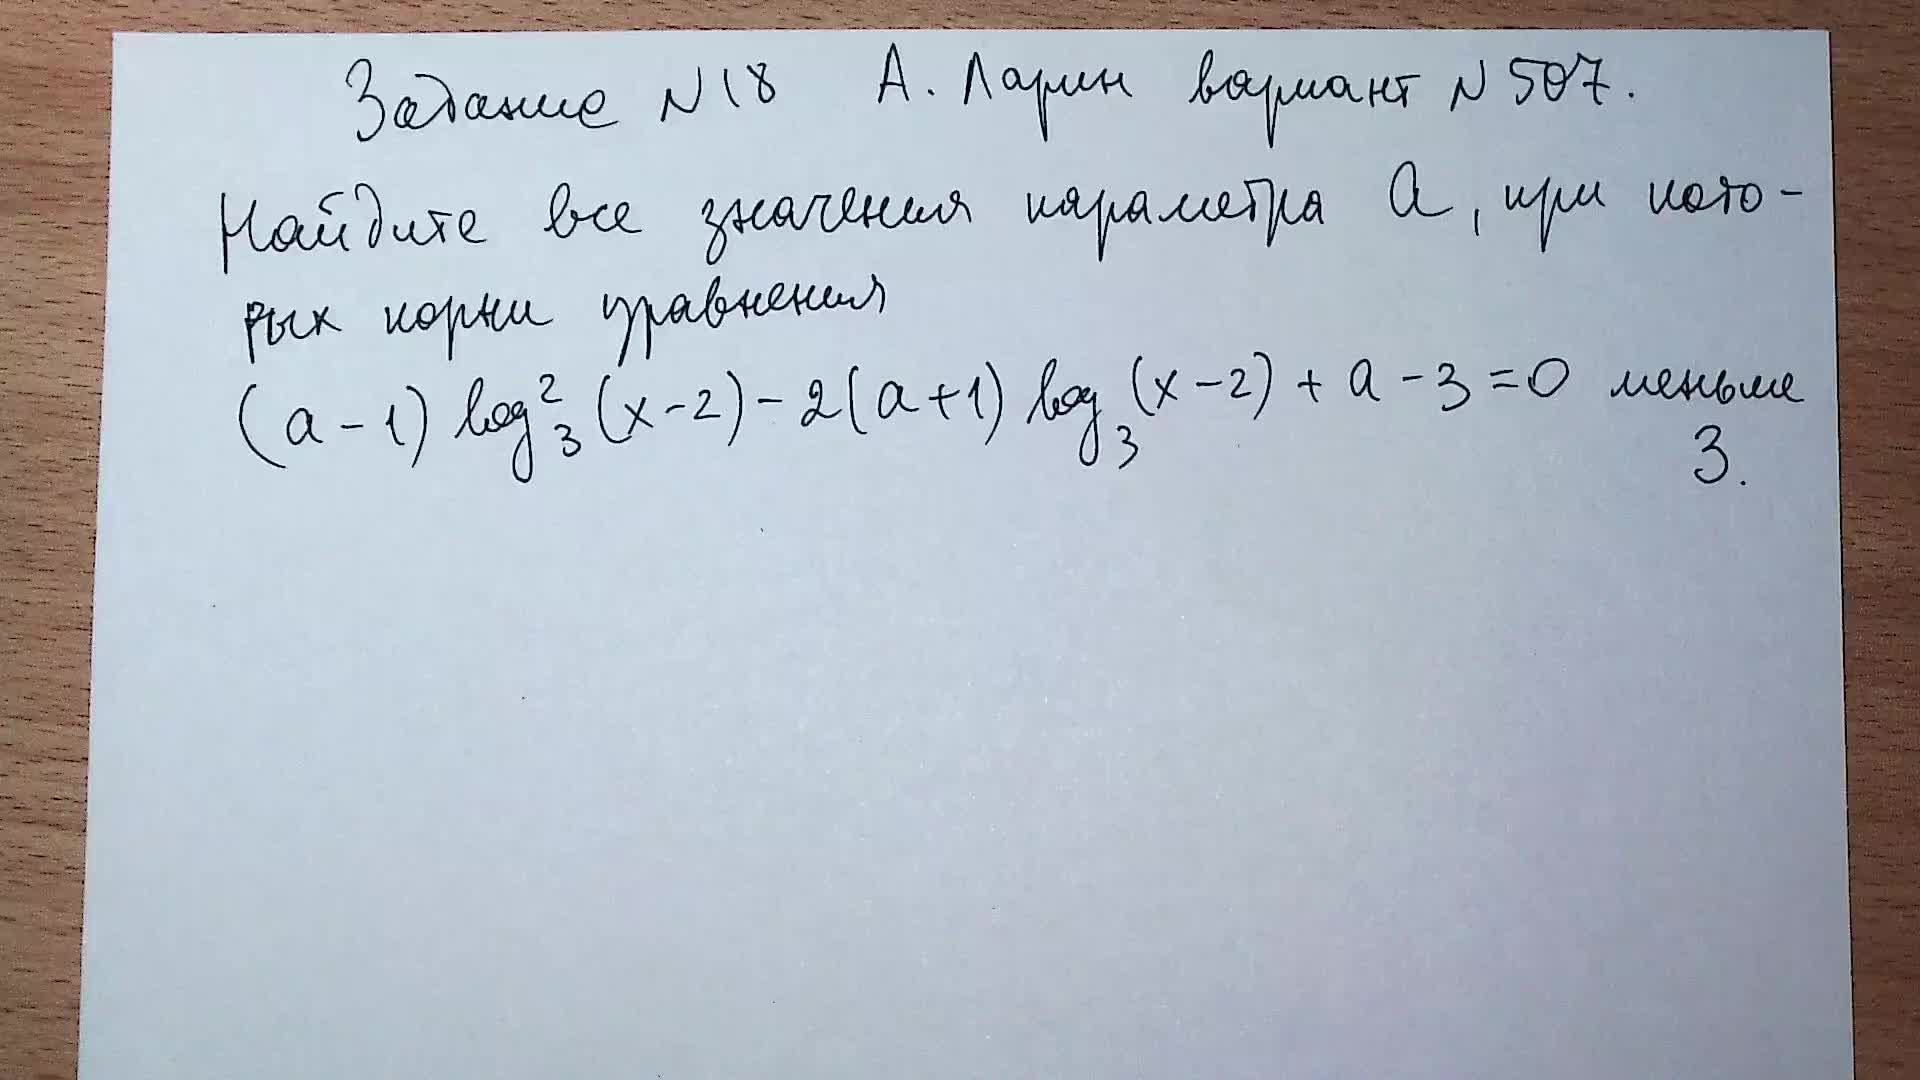 Задание N18 А. Ларин вариант N 507.
Найдите все значения параметра a, при кото-
рых корни уравнения
(a-1) log²₃ (x-2) - 2(a+1) log₃ (x-2) + a - 3 = 0 меньше
3.